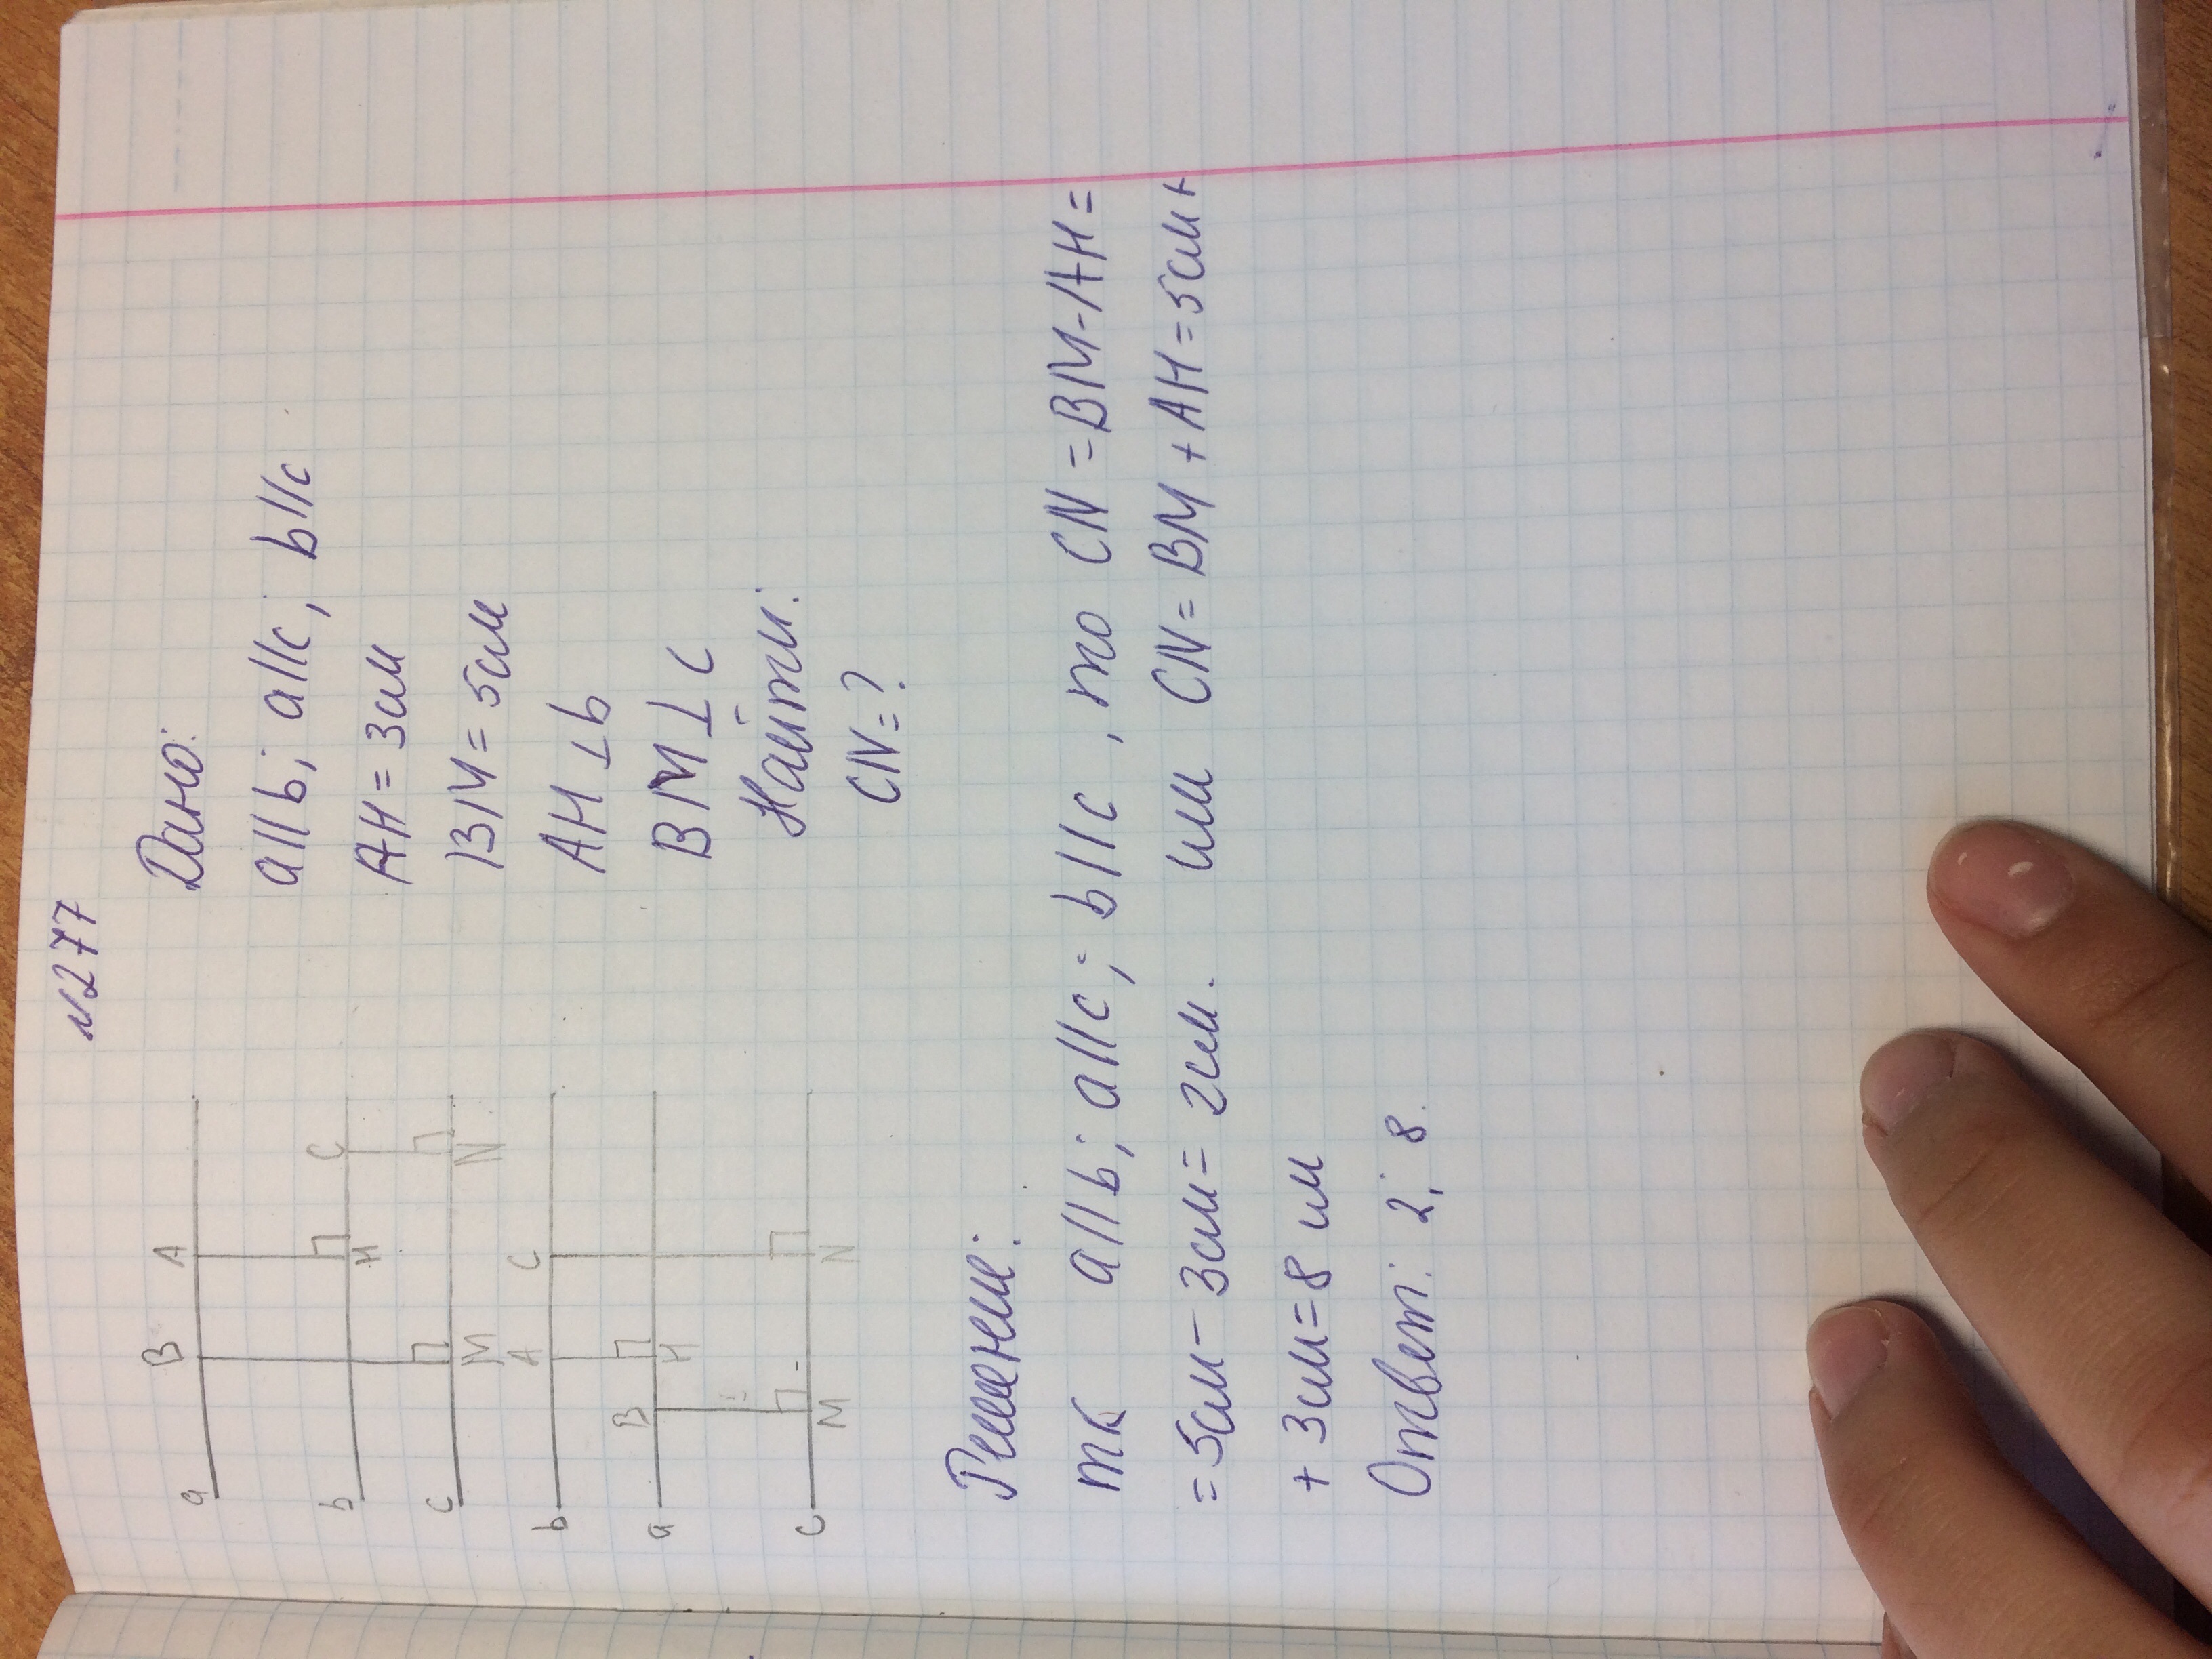 N277
Дано:
a||b; a||c; b||c
AH = 3см
BM = 5см
AH ⊥ b
BM ⊥ c
Найти:
CN = ?
a B A
b H C
c M N
b A C
a B H
c M N
Решение:
тк a||b; a||c; b||c, то CN = BM - AH =
= 5см - 3см = 2см. или CN = BM + AH = 5см +
+ 3см = 8 см
Ответ: 2; 8.